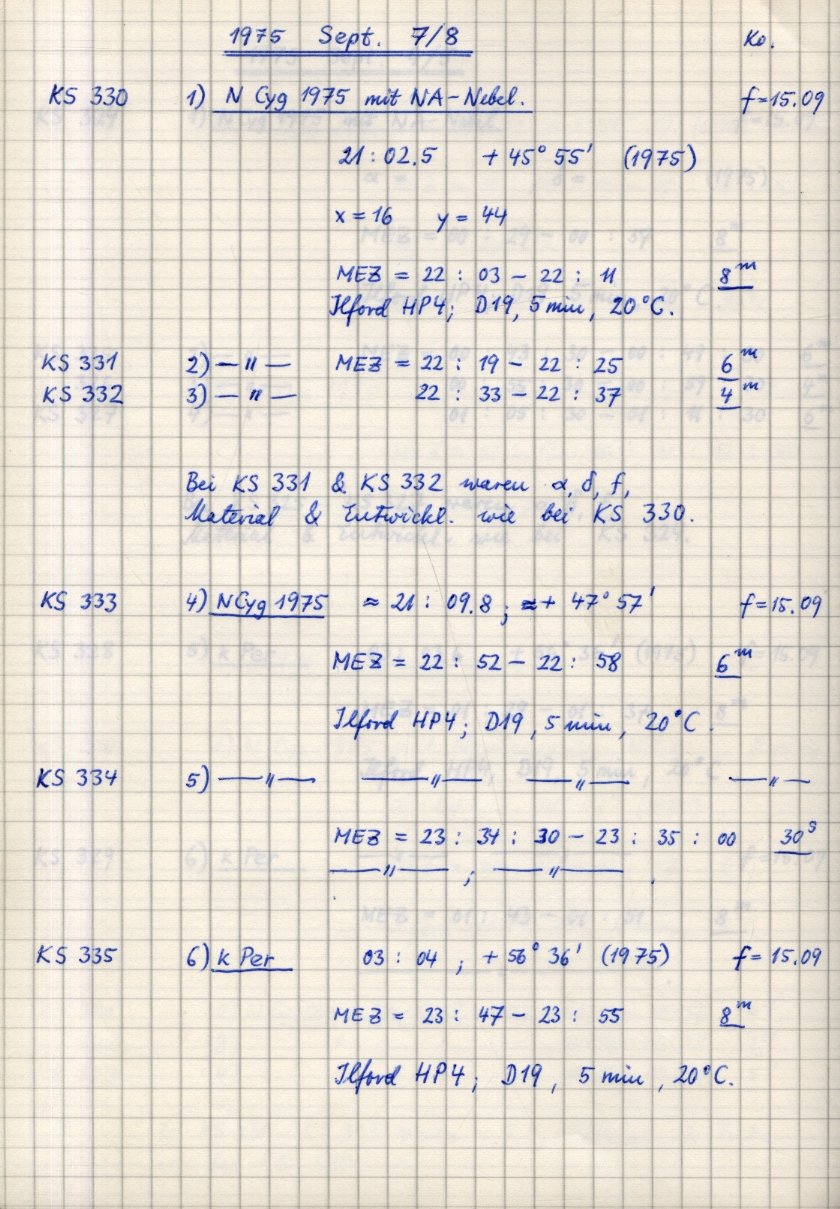 1975 Sept. 7/8 Ko.
KS 330 1) N Cyg 1975 mit NA-Nebel. f=15.09
21 : 02.5 + 45° 55' (1975)
x = 16 y = 44
MEZ = 22 : 03 - 22 : 11 8ᵐ
Ilford HP4; D19, 5 min, 20°C.
KS 331 2) — " — MEZ = 22 : 19 - 22 : 25 6ᵐ
KS 332 3) — " — 22 : 33 - 22 : 37 4ᵐ
Bei KS 331 & KS 332 waren α, δ, f,
Material & Entwickl. wie bei KS 330.
KS 333 4) N Cyg 1975 ≈ 21 : 09.8 ; ≈ + 47° 57' f=15.09
MEZ = 22 : 52 - 22 : 58 6ᵐ
Ilford HP4; D19, 5 min, 20°C.
KS 334 5) — " — — " — — " — — " —
MEZ = 23 : 34 : 30 - 23 : 35 : 00 30ˢ
— " — ; — " —
KS 335 6) k Per 03 : 04 ; + 56° 36' (1975) f = 15.09
MEZ = 23 : 47 - 23 : 55 8ᵐ
Ilford HP4; D19, 5 min, 20°C.